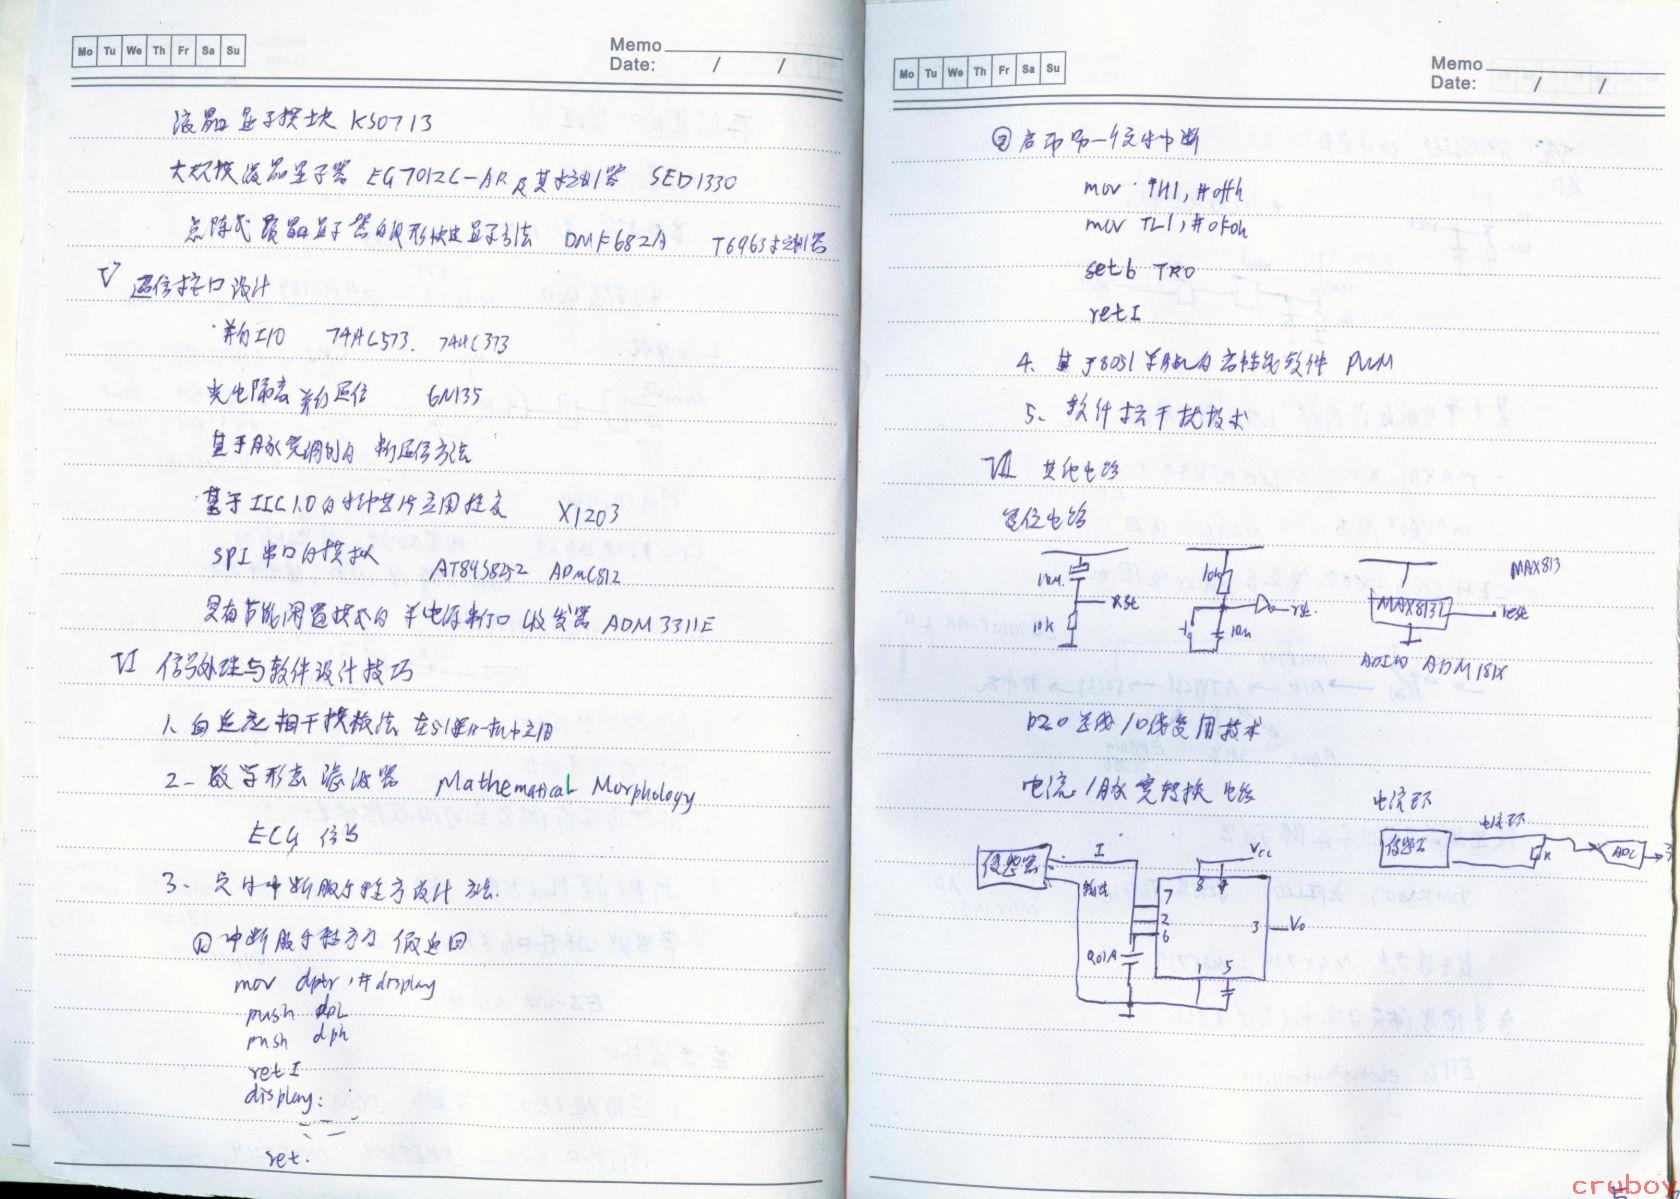 Mo Tu We Th Fr Sa Su
Memo
Date: / /
液晶显示模块 KS0713
大规模液晶显示器 EG7012C-AR及其控制器 SED1330
点阵式液晶显示器的图形快速显示方法 DMF682A T6963控制器
V 通信接口设计
并行I/O 74HC573. 74HC373
光电隔离并行通信 6N135
基于脉宽调制的 通信方法
基于IIC1.0的时钟芯片应用程序 X1203
SPI 串口的模拟 AT89S8252 ADMC812
具有节能闲置模式的单电源串行口收发器 ADM3311E
VI 信号处理与软件设计技巧
1. 自适应相干模板法 在 中应用
2- 数学形态滤波器 Mathematical Morphology
ECG 信号
3. 定时中断服务程序设计方法.
① 中断服务程序为 假返回
mov dptr, #display
push dpL
push dph
retI
display:
ret.
Mo Tu We Th Fr Sa Su
Memo
Date: / /
② 启用另一个定时中断
mov TH1, #0ffh
mov TL1, #0F0h
setb TR0
retI
4. 基于8051单片机的高性能软件 PWM
5. 软件抗干扰技术
VII 其他电路
复位电路
10u
Rst
10k
10k
rst.
10u
MAX813
MAX813L
rest
ADI的 ADM181X
总线/口线复用技术
电流/脉宽转换电路
电流环
传感器
I
输出
Vcc
8 4
7
2
6
3 Vo
1 5
0.01μ
传感器
电流环
R
ADC
cruboy